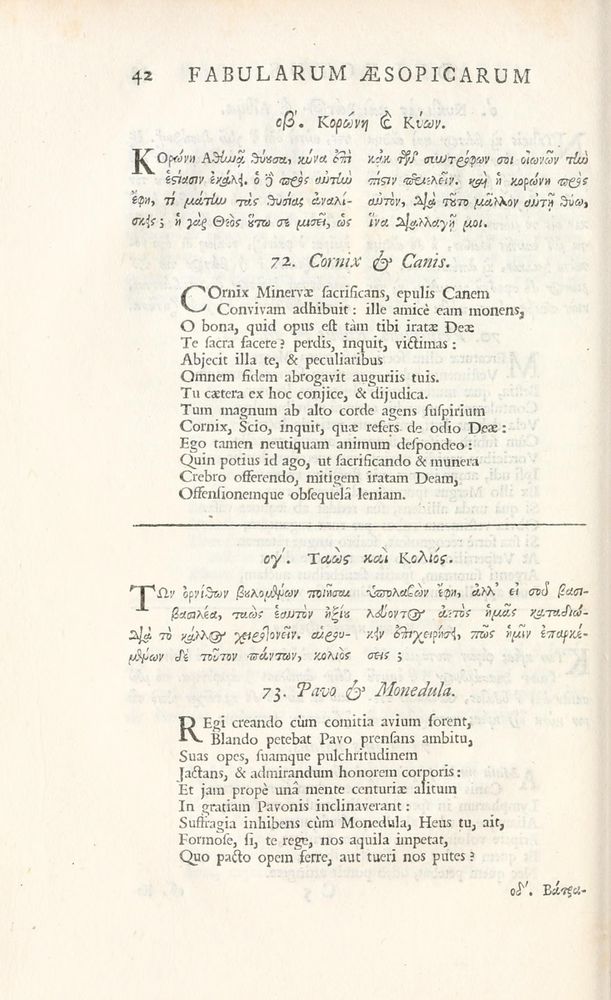 42 FABULARUM ÆSOPICARUM
οβ'. Κορώνη & Κύων.
Κορώνη Ἀθηνᾷ θύουσα, κύνα ἐπὶ
ἑστίασιν ἐκάλει. ὁ δὲ πρὸς αὐτὴν
ἔφη, τί μάτην τὰς θυσίας ἀναλί-
σκεις; ἡ γὰρ Θεὸς οὕτω σε μισεῖ, ὡς
κἀκ τῶν συντρόφων σοι οἰωνῶν τὴν
πίστιν περιελεῖν. καὶ ἡ κορώνη πρὸς
αὐτὸν, διὰ τοῦτο μᾶλλον αὐτῇ θύω,
ἵνα διαλλαγῇ μοι.
72. Cornix & Canis.
COrnix Minervæ sacrificans, epulis Canem
Convivam adhibuit: ille amicè eam monens,
O bona, quid opus est tàm tibi iratæ Deæ
Te sacra facere? perdis, inquit, victimas:
Abjecit illa te, & peculiaribus
Omnem fidem abrogavit auguriis tuis.
Tu cætera ex hoc conjice, & dijudica.
Tum magnum ab alto corde agens suspirium
Cornix, Scio, inquit, quæ refers de odio Deæ:
Ego tamen neutiquam animum despondeo:
Quin potius id ago, ut sacrificando & munera
Crebro offerendo, mitigem iratam Deam,
Offensionemque obsequelâ leniam.
ογ'. Ταὼς καὶ Κολιός.
Τῶν ὀρνίθων βουλομένων ποιῆσαι
βασιλέα, ταὼς ἑαυτὸν ἠξίου
διὰ τὸ κάλλος χειροτονεῖν. αἱρου-
μένων δὲ τοῦτον πάντων, κολιὸς
ὑπολαβὼν ἔφη, ἀλλ' εἰ σοῦ βασι-
λεύοντος ἀετὸς ἡμᾶς καταδιώ-
κειν ἐπιχειρήσει, πῶς ἡμῖν ἐπαρκέ-
σεις;
73. Pavo & Monedula.
REgi creando cùm comitia avium forent,
Blando petebat Pavo prensans ambitu,
Suas opes, suamque pulchritudinem
Jactans, & admirandum honorem corporis:
Et jam propè unâ mente centuriæ alitum
In gratiam Pavonis inclinaverant:
Suffragia inhibens cùm Monedula, Heus tu, ait,
Formose, si, te rege, nos aquila impetat,
Quo pacto opem ferre, aut tueri nos putes?
οδ'. Βάτρα-